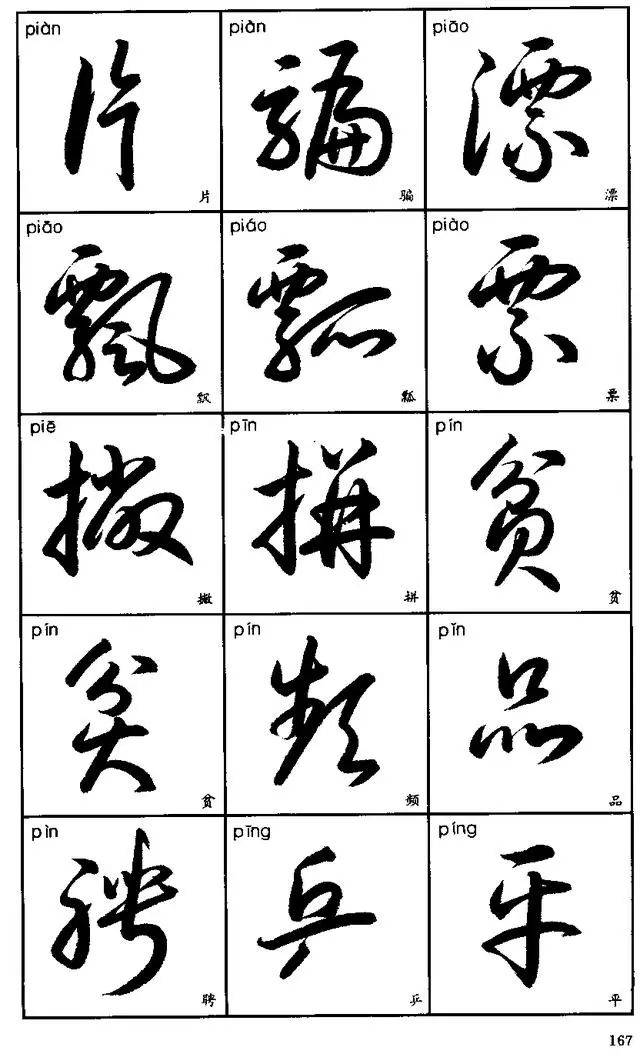 piàn piàn piāo
片 骗 漂
片 骗 漂
piāo piáo piào
飘 瓢 票
飘 瓢 票
piē pīn pín
撇 拼 贫
撇 拼 贫
pín pín pǐn
贫 频 品
贫 频 品
pìn pīng píng
聘 乒 平
聘 乒 平
167